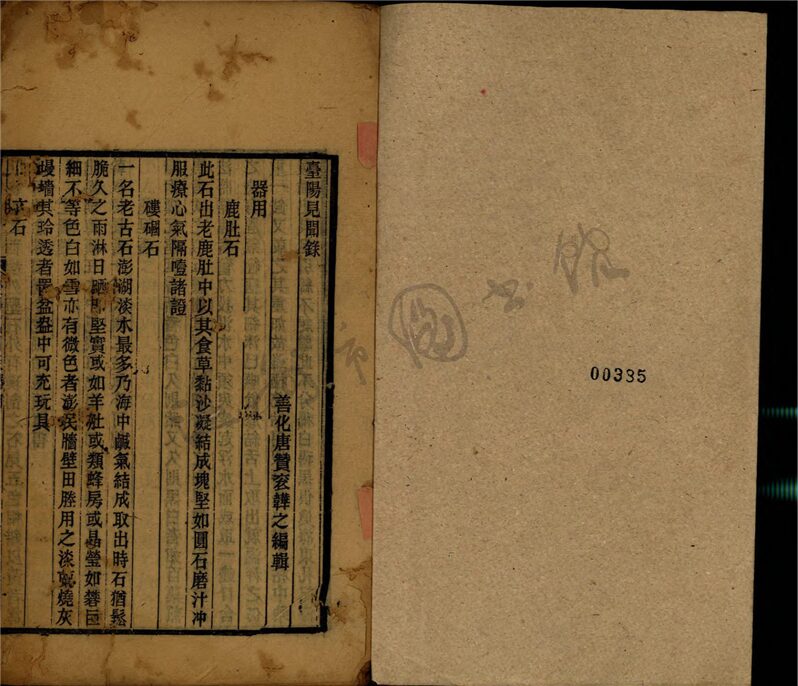 臺陽見聞錄
善化唐贊袞韡之編輯
器用
鹿肚石
此石出老鹿肚中以其食草黏沙凝結成塊堅如圓石磨汁冲
服療心氣隔噎諸證
硓𥑮石
一名老古石澎湖淡水最多乃海中鹹氣結成取出時石猶鬆
脆久之雨淋日晒即堅實或如羊肚或類蜂房或晶瑩如礬巨
細不等色白如雪亦有微色者澎民牆壁田塍用之淡氣燒灰
墁墻其玲透者置盆盎中可充玩具
石
00385